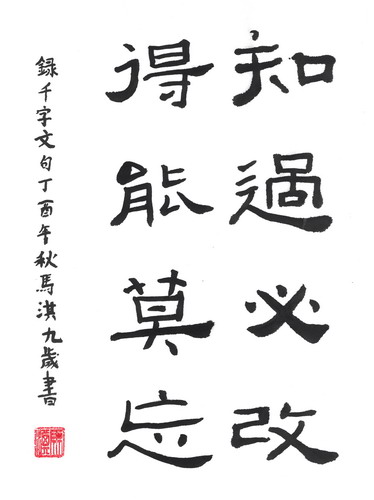 知過必改
得能莫忘
錄千字文句丁酉年秋馬淇九歲書